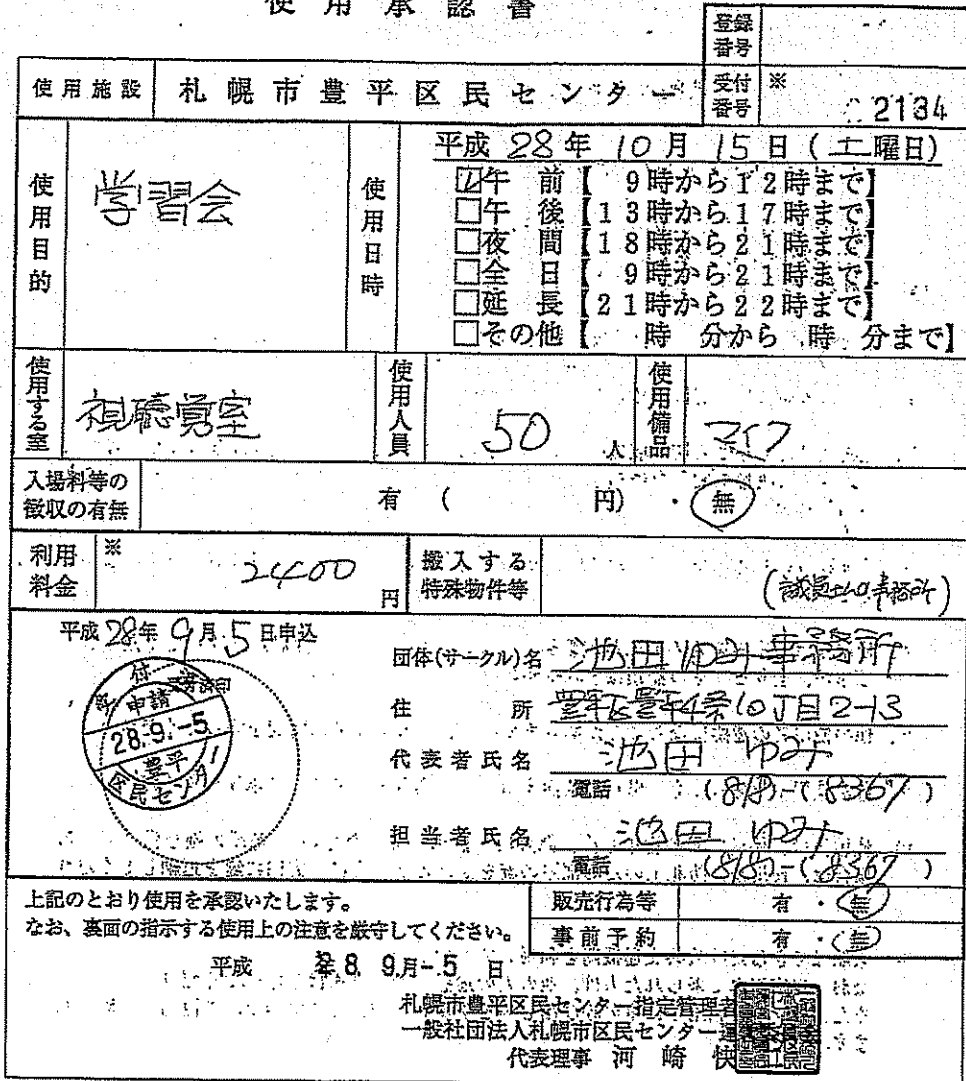 使用承認書
登録番号
使用施設 札幌市豊平区民センター 受付番号 ※ 2134
使用目的 学習会
使用日時 平成 28年 10月 15日(土曜日)
☑午前【 9時から12時まで】
□午後【13時から17時まで】
□夜間【18時から21時まで】
□全日【 9時から21時まで】
□延長【21時から22時まで】
□その他【 時 分から 時 分まで】
使用する室 視聴覚室 使用人員 50人 使用備品 マイク
入場料等の徴収の有無 有 ( 円) ・ 無
利用料金 ※ 2400円 搬入する特殊物件等
平成 28年 9月 5日申込
団体(サークル)名 池田ゆみ事務所
受付 申請 28.9.-5 豊平 区民センター
住所 豊平区豊平4条10丁目2-13
代表者氏名 池田 ゆみ
電話 (818)-(8367)
担当者氏名 池田 ゆみ
電話 (818)-(8367)
上記のとおり使用を承認いたします。
なお、裏面の指示する使用上の注意を厳守してください。
販売行為等 有 ・ 無
事前予約 有 ・ 無
平成 28. 9.月-5 日
札幌市豊平区民センター指定管理者
一般社団法人札幌市区民センター運
代表理事 河崎 快